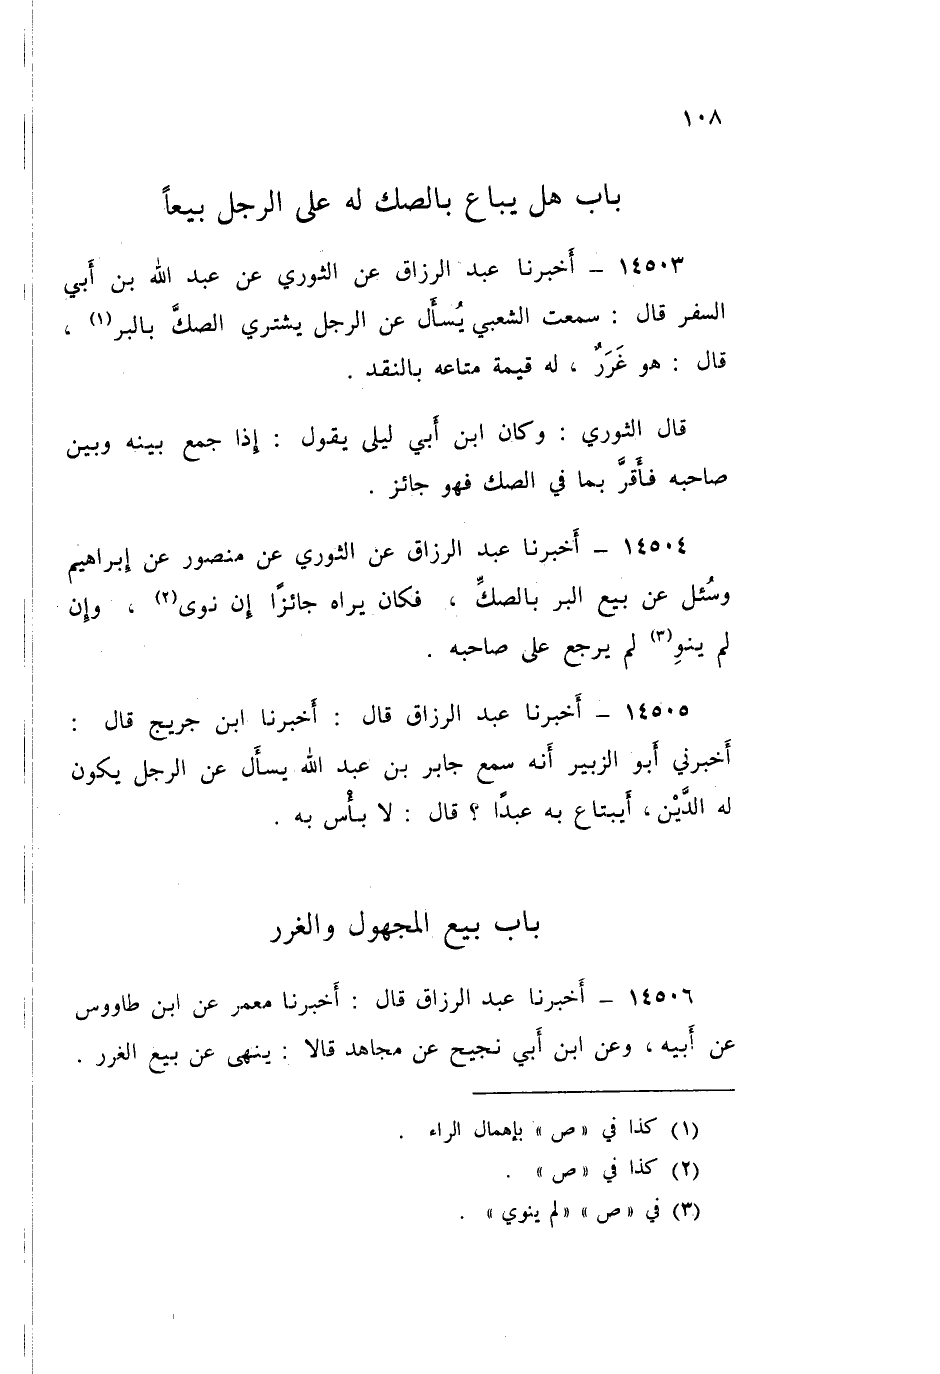 ١٠٨
باب هل يباع بالصك له على الرجل بيعاً
١٤٥٠٣ – أَخبرنا عبد الرزاق عن الثوري عن عبد الله بن أَبي
السفر قال : سمعت الشعبي يُسأَل عن الرجل يشتري الصكَّ بالبر(١) ،
قال : هو غَرَرٌ ، له قيمة متاعه بالنقد .
قال الثوري : وكان ابن أَبي ليلى يقول : إِذا جمع بينه وبين
صاحبه فأَقرَّ بما في الصك فهو جائز .
١٤٥٠٤ – أَخبرنا عبد الرزاق عن الثوري عن منصور عن إِبراهيم
وسُئل عن بيع البر بالصكِّ ، فكان يراه جائزًا إِن نوى(٢) ، وإِن
لم ينوِ(٣) لم يرجع على صاحبه .
١٤٥٠٥ – أَخبرنا عبد الرزاق قال : أَخبرنا ابن جريج قال :
أَخبرني أَبو الزبير أَنه سمع جابر بن عبد الله يسأَل عن الرجل يكون
له الدَّيْن ، أَيبتاع به عبدًا ؟ قال : لا بأْس به .
باب بيع المجهول والغرر
١٤٥٠٦ – أَخبرنا عبد الرزاق قال : أَخبرنا معمر عن ابن طاووس
عن أَبيه ، وعن ابن أَبي نجيح عن مجاهد قالا : ينهى عن بيع الغرر .
(١) كذا في « ص » بإهمال الراء .
(٢) كذا في « ص » .
(٣) في « ص » « لم ينوي » .